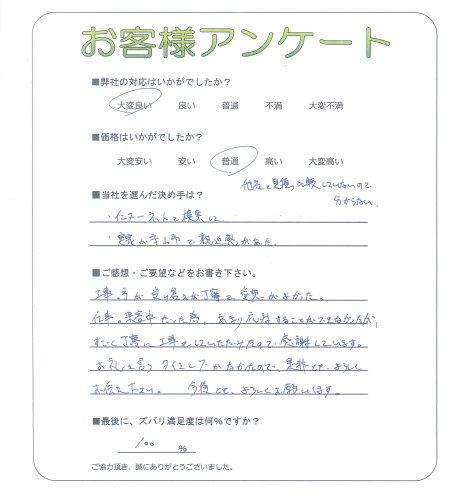 お客様アンケート
■弊社の対応はいかがでしたか？
大変良い 良い 普通 不満 大変不満
■価格はいかがでしたか？
大変安い 安い 普通 高い 大変高い
他社と見積り比較していないので
分からない
■当社を選んだ決め手は？
・インターネットで検索して
・実家が守山市で親近感があった。
■ご感想・ご要望などをお書き下さい。
工事の方が受け答えが丁寧で感じがよかった。
仕事の来客中だった為、あまり応対することができなかったが、
すごく丁寧に工事をしていただけたので感謝しています。
お礼を言うタイミングがなかったので、是非ともよろしく
お伝え下さい。 今後とも、よろしくお願いします。
■最後に、ズバリ満足度は何％ですか？
100 ％
ご協力頂き、誠にありがとうございました。